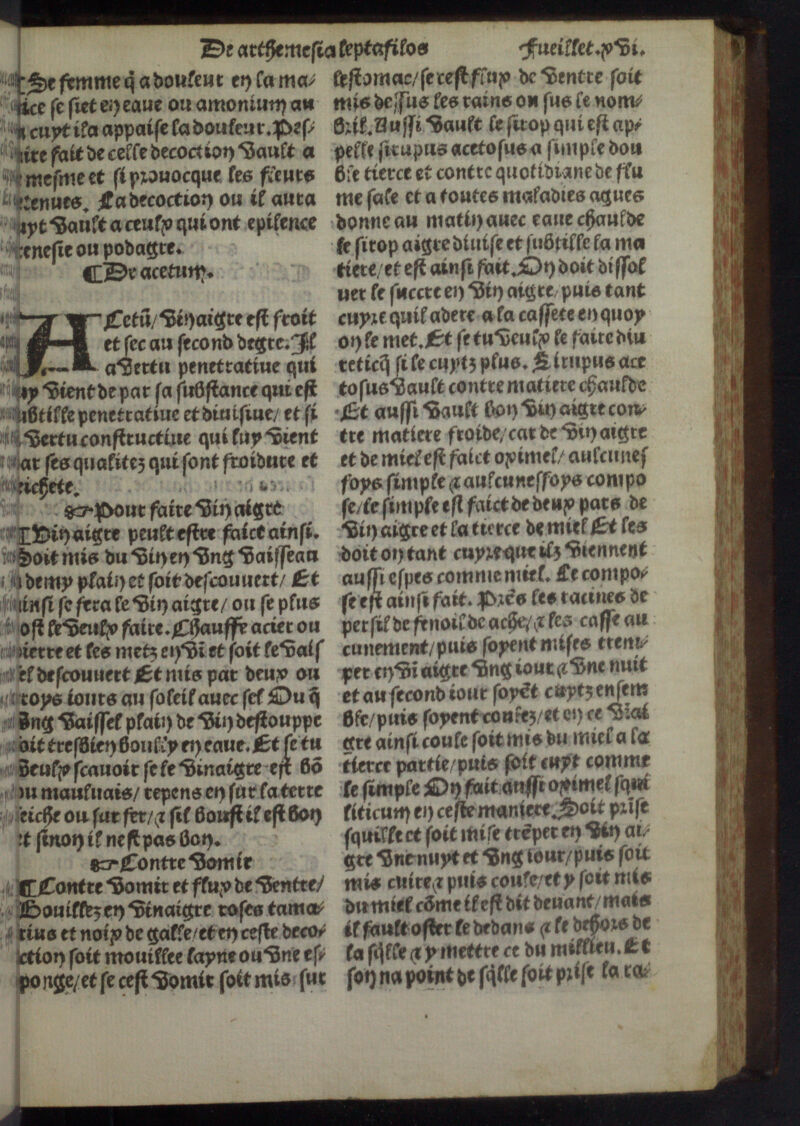 De arthemesia leptafilos
fueillet.xvi.
Se femme q̄ a douleur en la ma⸗
ice se siet en eaue ou amonium au
cuyt ila appaise la douleur. Pes⸗
ire fait de celle decoction vault a
mesme et si prouocque les fleurs
tenues. La decoction ou il aura
uyt vault a ceulx qui ont epilence
enesie ou podagre.
¶ De acetum.
ACetū/vinaigre est froit
et sec au second degre. Il
a vertu penetratiue qui
uy vient de par sa substance qui est
ubtille penetratiue et diuisiue/ et si
vertu constructiue qui luy vient
ar ses qualitez qui sont froidure et
eichete.
☞ Pour faire vin aigre
¶ Vin aigre peult estre faict ainsi.
Soit mis du vin en vng vaisseau
demy plain et soit descouuert/ Et
ainsi se fera le vin aigre/ ou se plus
ost le veulx faire. Chauffe acier ou
pierre et les metz en vī et soit le vais
el descouuert Et mis par deux ou
troys iours au soleil auec sel Ou q̄
vng vaissel plain de vin destouppe
oit tresbien boully en eaue. Et se tu
veulx scauoir se le vinaigre est bō
ou mauluais/ repens en sur la terre
seiche ou sur fer/⁊ sil boust il est bon
et sinon il nest pas bon.
☞ Contre vomir
¶ Contre vomir et flux de ventre/
Bouillez en vinaigre roses tama⸗
rius et noix de galle/ et en ceste deco⸗
ction soit mouillee layne ou vne es⸗
ponge/ et se cest vomir soit mis sur
lestomac/ se cest flux de ventre soit
mis dessus les rains ou sus le nom⸗
bril. Aussi vault le sirop qui est ap⸗
pelle sirupus acetosus a simple dou
ble tierce et contre quotidiane de flu
me sale et a toutes maladies agues
donne au matin auec eaue chaulde
le sirop aigre diuise et subtille la ma
tiere/ et est ainsi fait. On doit dissol
uer le succre en vin aigre/ puis tant
cuyre quil adere a la cassete en quoy
on le met. Et se tu veulx le faire diu
reticq̄ si le cuytz plus. Sirupus ace
tosus vault contre matiere chaulde
Et aussi vault bon vin aigre con⸗
tre matiere froide/ car de vin aigre
et de miel est faict oximel/ aulcunes
foys simple ⁊ aulcuneffoys compo
se/ le simple est faict de deux pars de
vin aigre et la tierce de miel Et les
doit on tant cuyre que ilz viennent
aussi espes comme miel. Le compo⸗
se est ainsi fait. Prēs les racines de
persil de fenoil de ache/ ⁊ les casse au
cunement/ puis soyent mises trem⸗
per en vī aigre vng iour ⁊ vne nuit
et au second iour soyēt cuytz ensem
ble/ puis soyent coulez/ et en ce vīai
gre ainsi coule soit mis du miel a la
tierce partie/ puis soit cuyt comme
le simple On fait aussi oximel squi
liticum en ceste maniere. Soit prise
squille et soit mise trēper en vin ai⸗
gre vne nuyt et vng iour/ puis soit
mis cuire ⁊ puis coule/ et y soit mis
du miel cōme il est dit deuant/ mais
il fault oster le dedans ⁊ le dehors de
la sq̄lle ⁊ y mettre ce du millieu. Et
son na point de sq̄lle soit prise la ra⸗